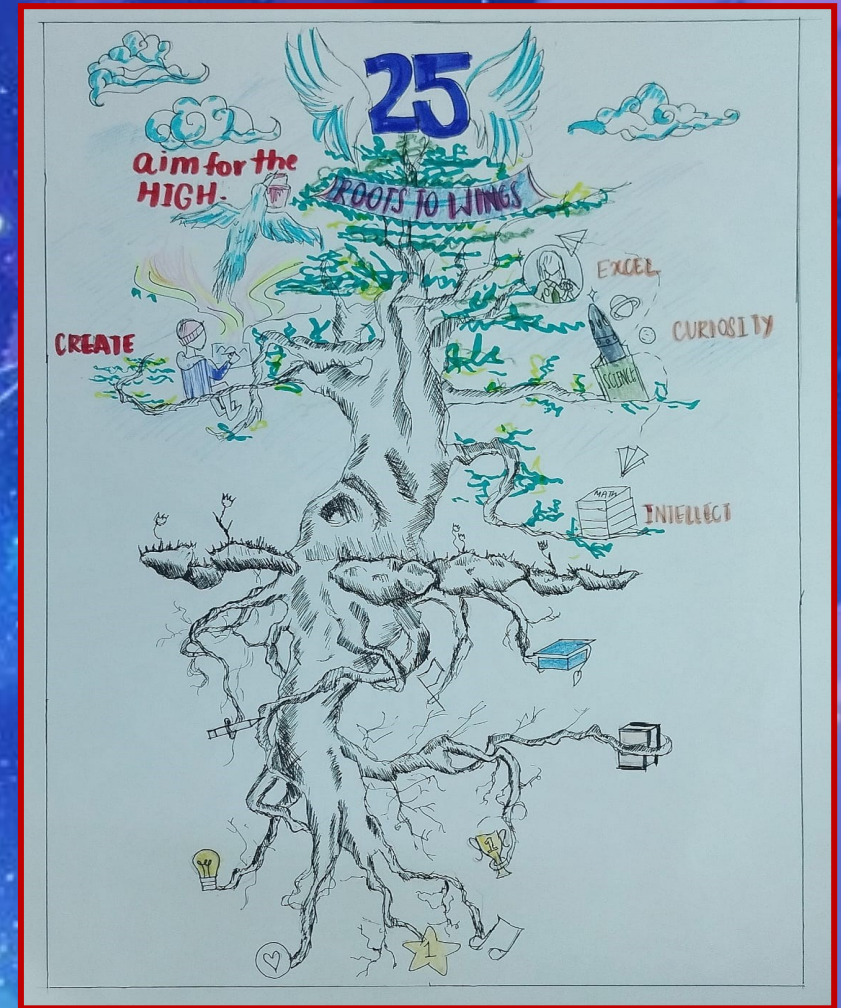 25
ROOTS TO WINGS
aim for the
HIGH.
EXCEL
CURIOSITY
CREATE
SCIENCE
MATH
INTELLECT
1
1